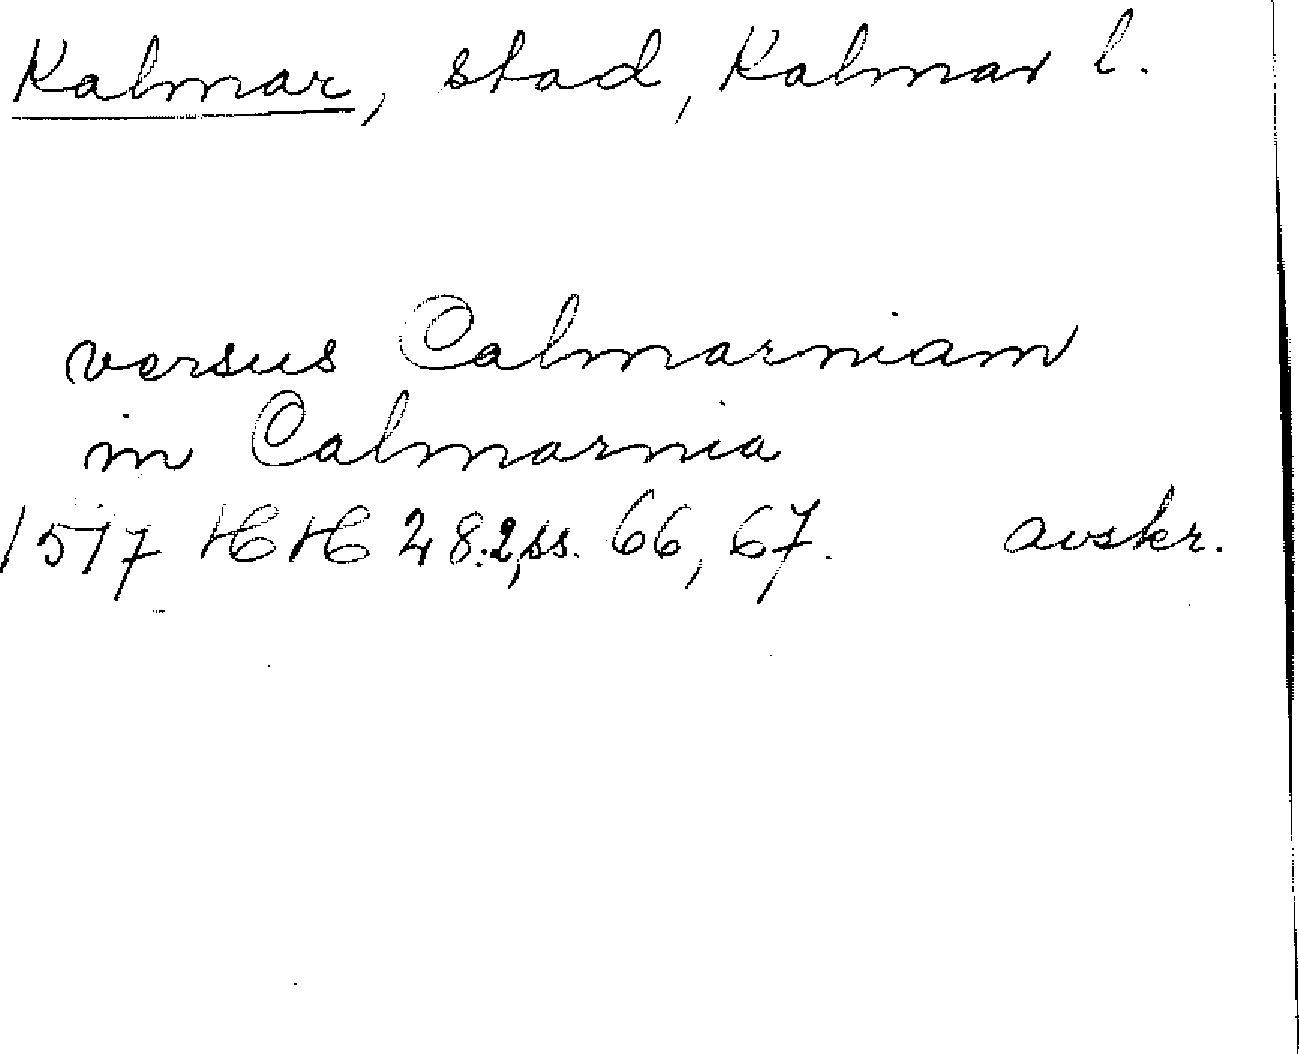 Kalmar, stad, Kalmar l.
versus Calmarniam
in Calmarnia
1517 HH 28:2, ss. 66, 67. avskr.